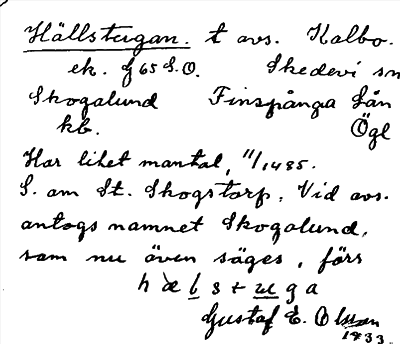 Hällstugan. t avs. Kalbo.
ek. f 65 S.O. Skedevi sn
Skogalund Finspånga län
kb. Ögl
Har litet mantal, 11/1485.
S. om St. Skogstorp. Vid avs.
antogs namnet Skogalund,
som nu även säges, förs
hæls t u ga
Gustaf E. Olsson
1933.